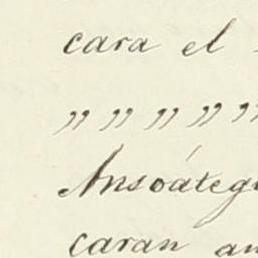 cara el
” ” ” ” ”
Ansoátegu
caran an